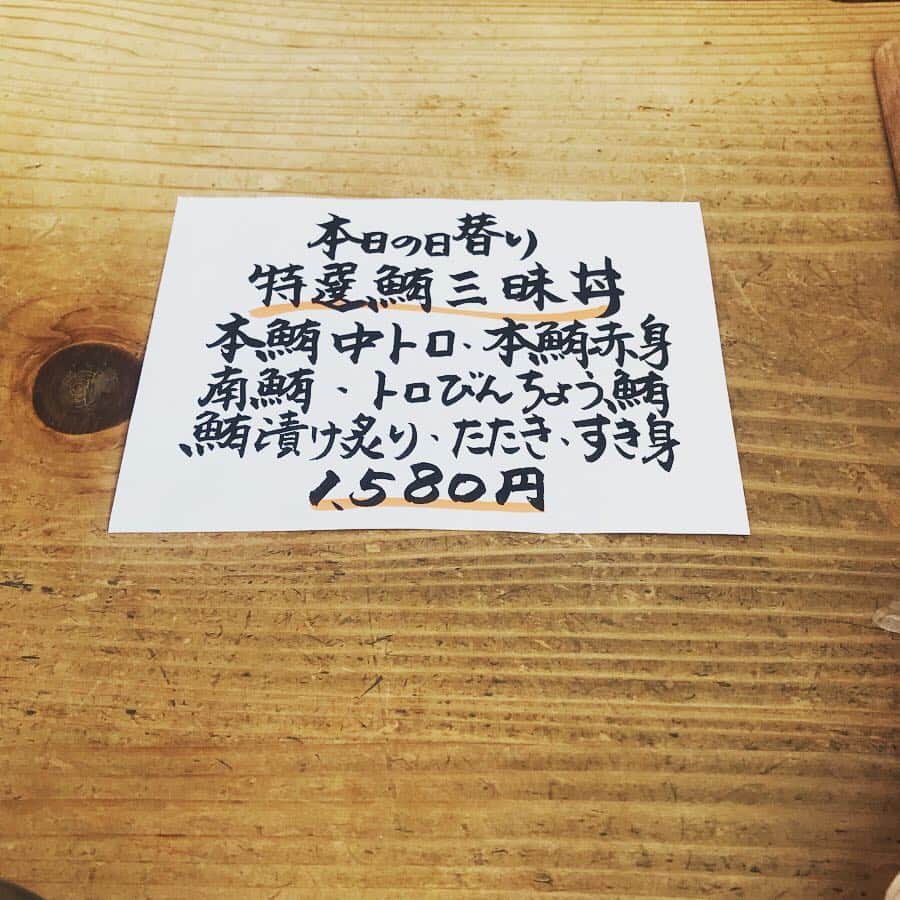 本日の日替り
特選鮪三昧丼
本鮪中トロ、本鮪赤身
南鮪、トロびんちょう鮪
鮪漬け炙り、たたき、すき身
1,580円